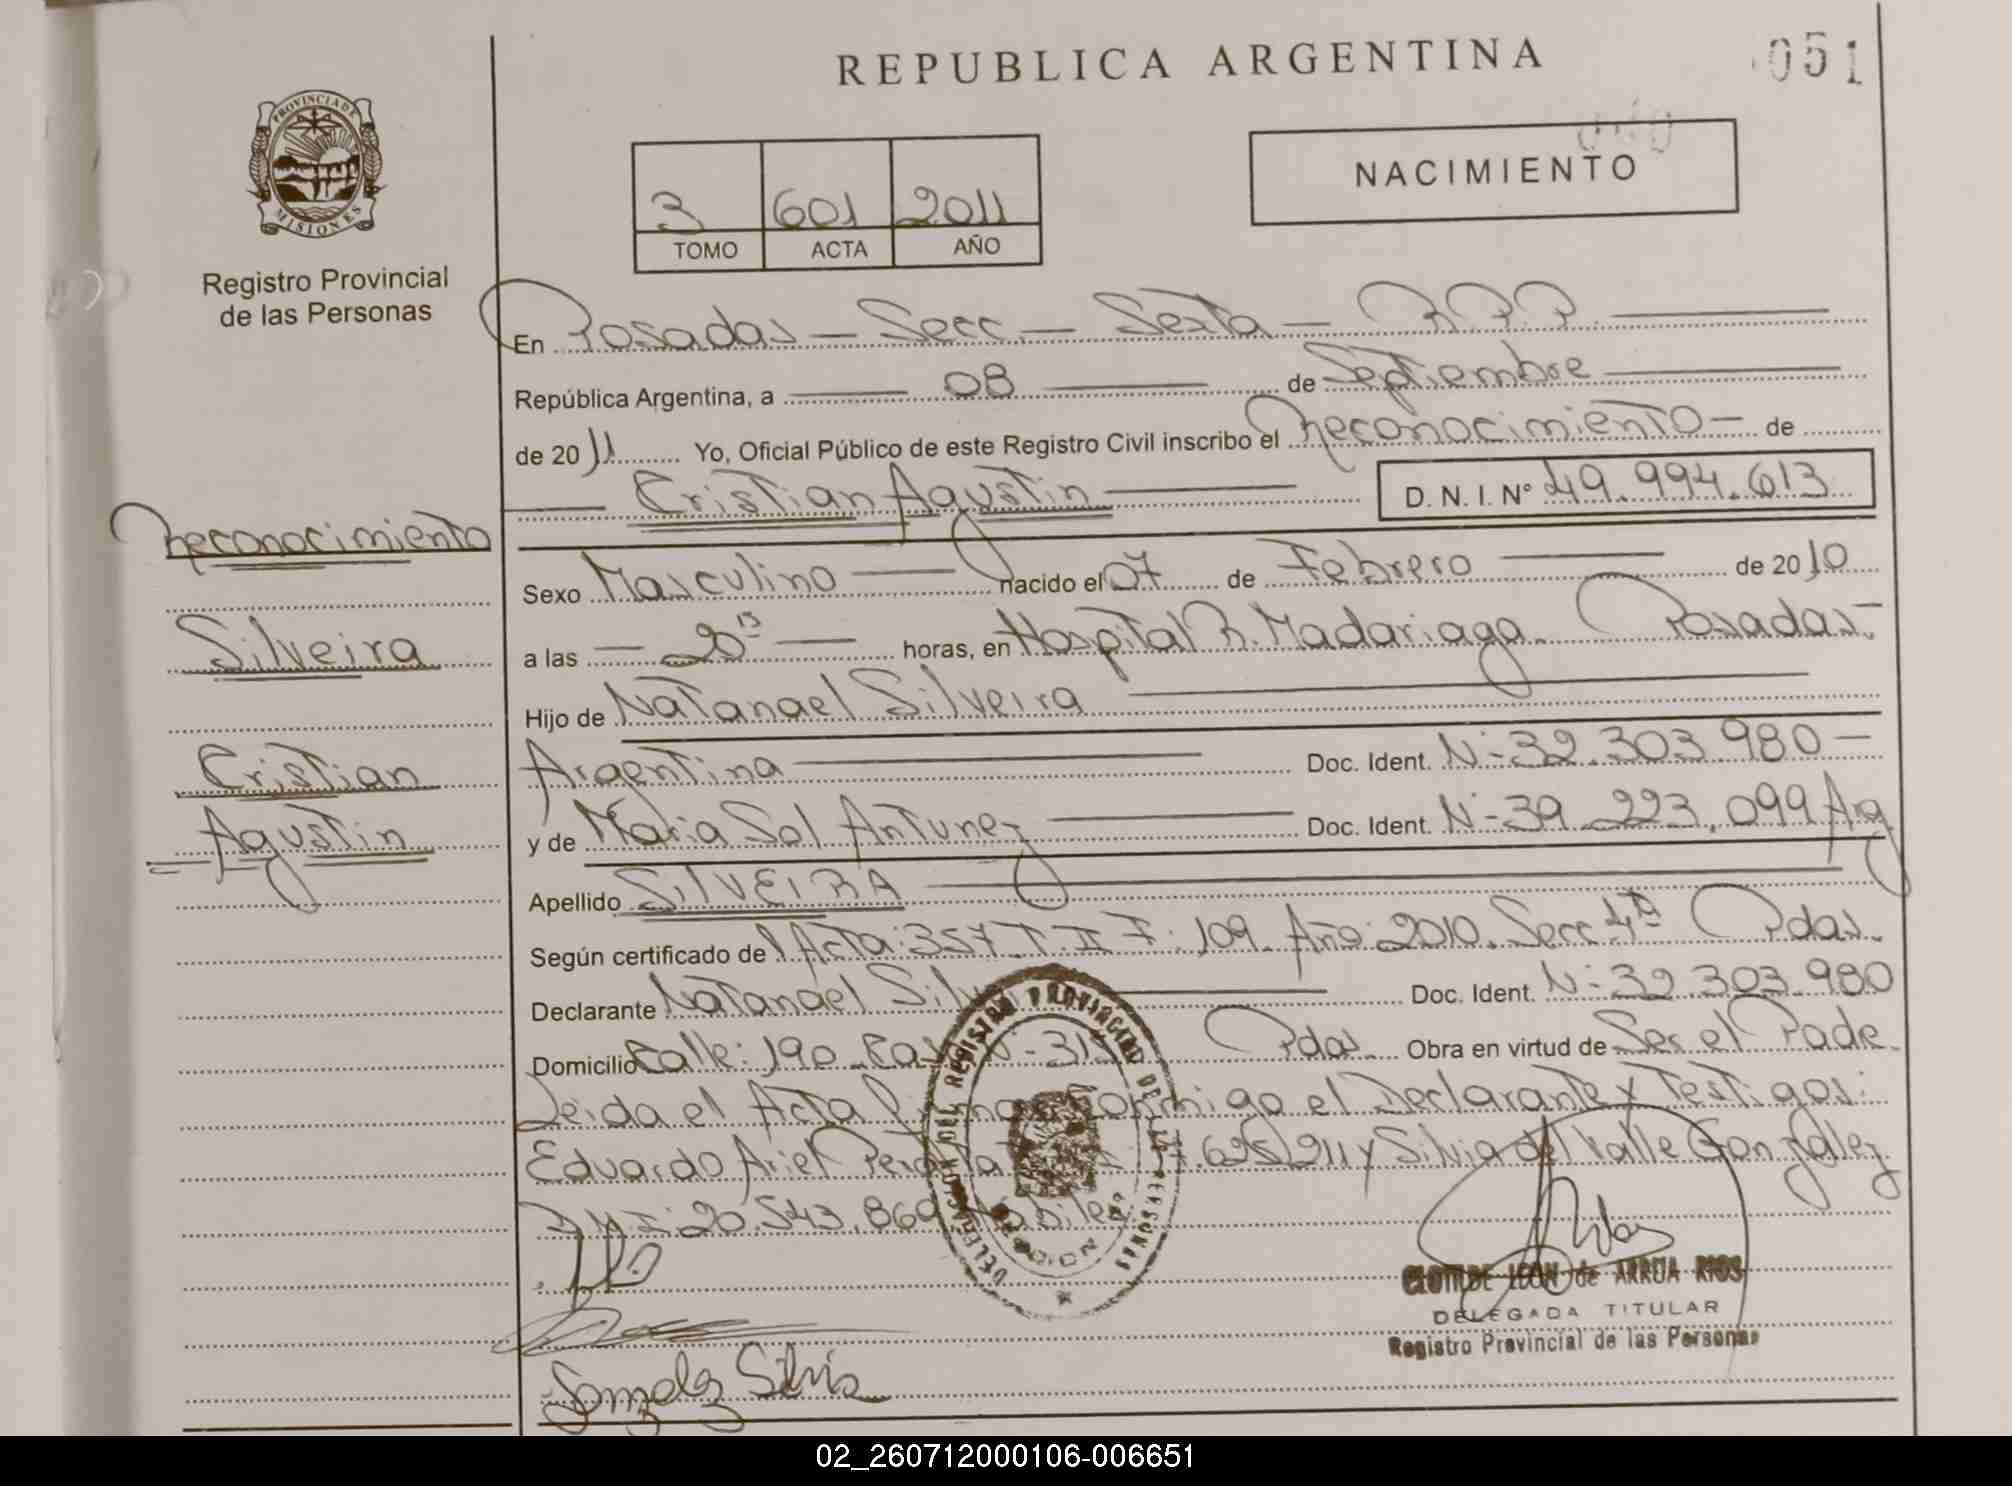 REPUBLICA ARGENTINA
051
PROVINCIA DE MISIONES
Registro Provincial
de las Personas
3 601 2011
TOMO ACTA AÑO
NACIMIENTO
En Posadas - Secc - Sexta - R.P.P.
República Argentina, a 08 de Septiembre
de 2011 Yo, Oficial Público de este Registro Civil inscribo el Reconocimiento - de
Cristian Agustin D. N. I. Nº 49.994.613
Reconocimiento
Silveira
Cristian
Agustin
Sexo Masculino nacido el 07 de Febrero de 2010
a las - 20 15 - horas, en Hospital R. Madariaga - Posadas -
Hijo de Natanael Silveira
Argentina Doc. Ident. N:-32.303.980 -
y de Maria Sol Antunez Doc. Ident. N:-39.223.099 Arg
Apellido SILVEIRA
Según certificado de Acta: 357. T. II F: 109. Año: 2010. Secc 4ta Pdas.
Declarante Natanael Doc. Ident. N:-32.303.980
Domicilio Calle: 190 Pdas. Obra en virtud de Ser el Padre.
Leida el Acta conmigo el Declarante y Testigos:
Eduardo Ariel y Silvia del Valle Gonzalez
D.N.I: 20.543.869
DELEGACION DEL REGISTRO PROVINCIAL DE LAS PERSONAS
CLOTILDE LEON de ARRUA RIOS
DELEGADA TITULAR
Registro Provincial de las Personas
Gonzalez Silvia
02_260712000106-006651